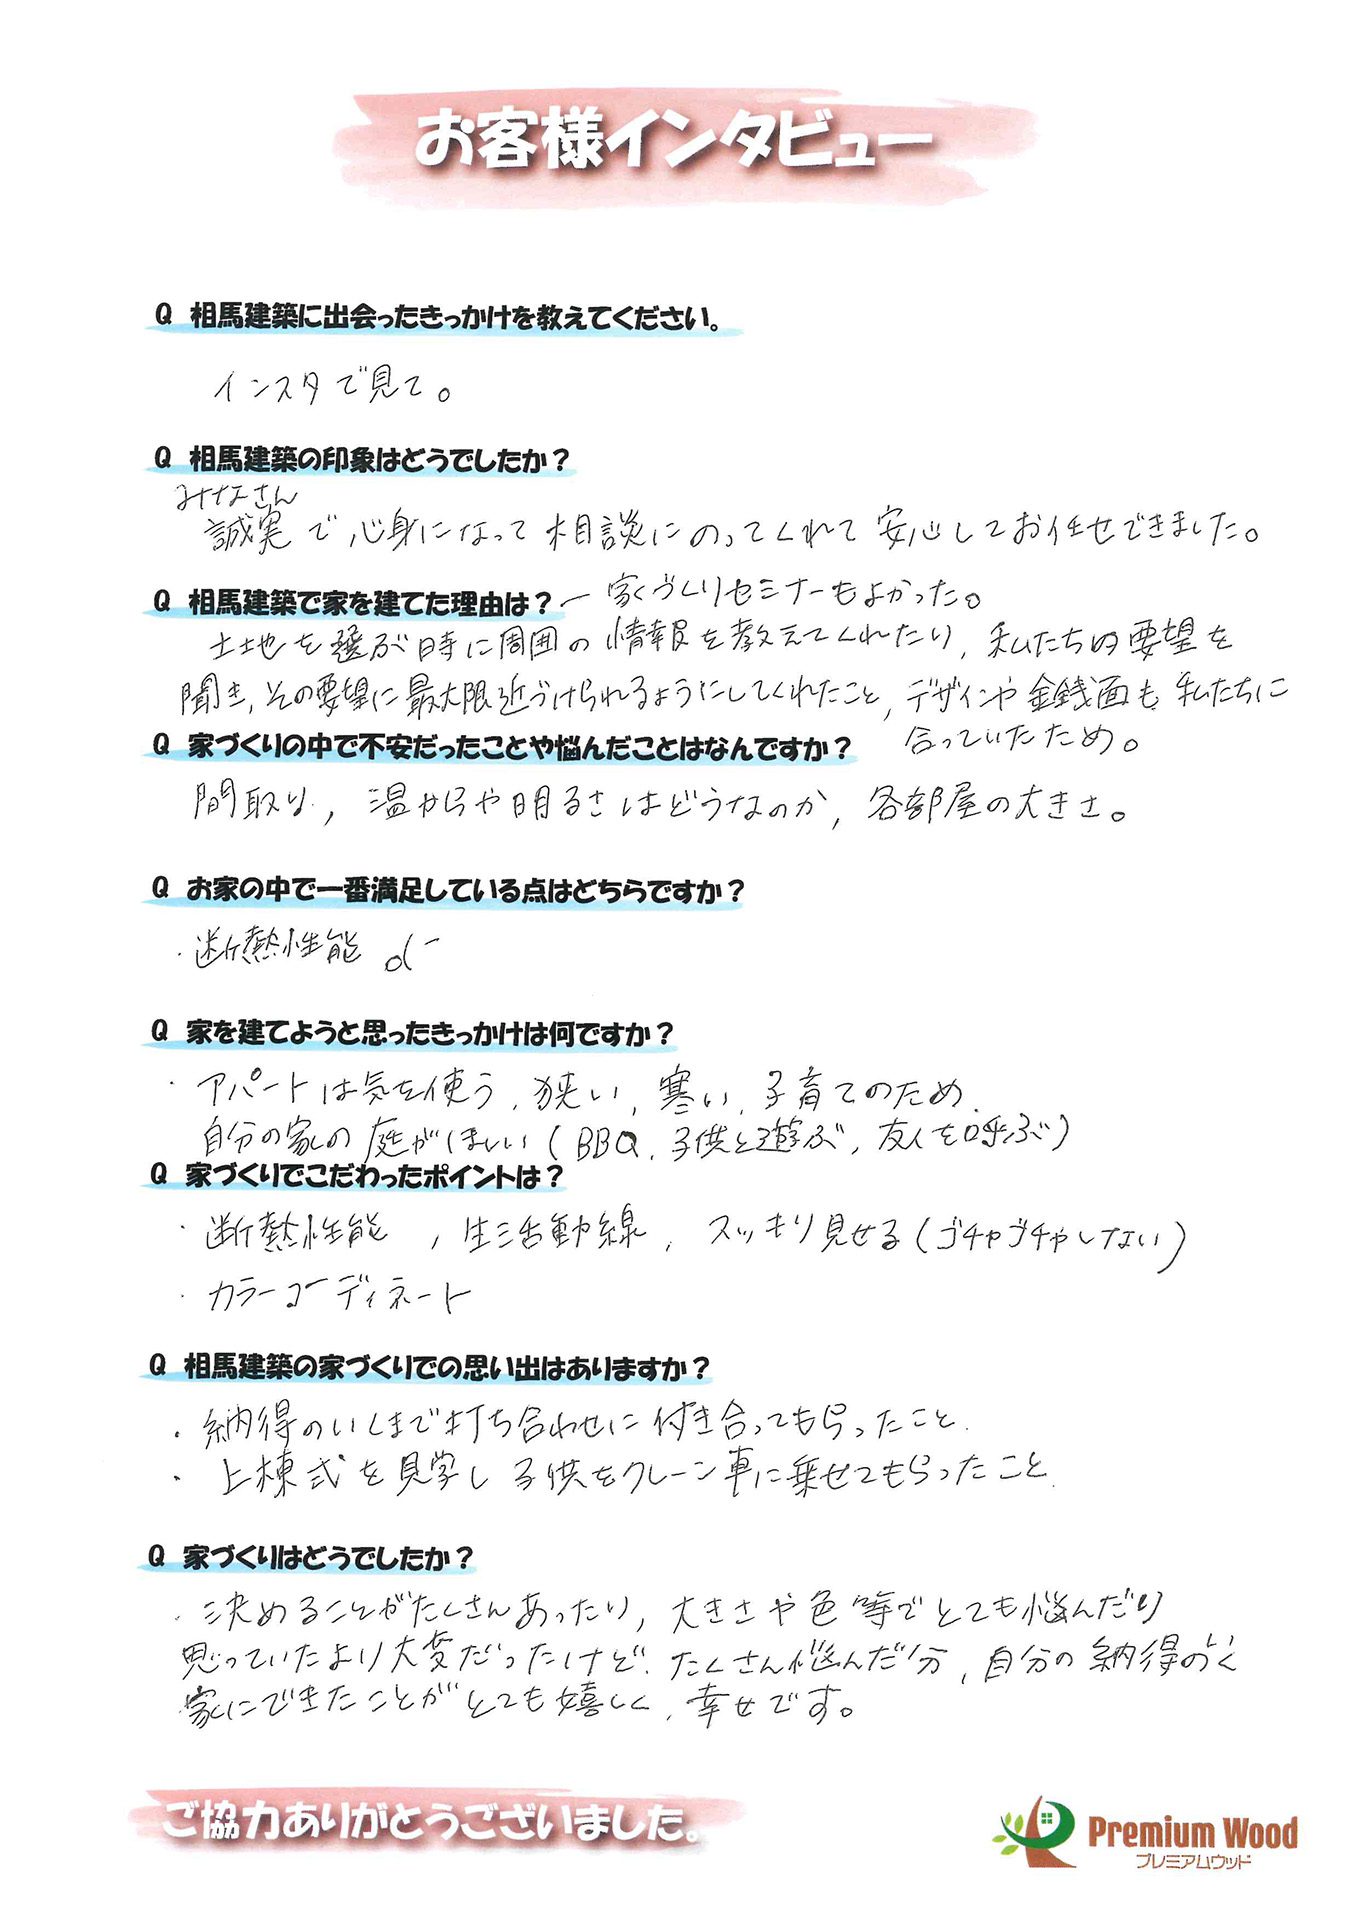 お客様インタビュー
Q 相馬建築に出会ったきっかけを教えてください。
インスタで見て。
Q 相馬建築の印象はどうでしたか？
みなさん
誠実で心身になって相談にのってくれて安心してお任せできました。
Q 相馬建築で家を建てた理由は？
ー家づくりセミナーもよかった。
土地を選ぶ時に周囲の情報を教えてくれたり、私たちの要望を
聞き、その要望に最大限近づけられるようにしてくれたこと、デザインや金銭面も私たちに
合っていたため。
Q 家づくりの中で不安だったことや悩んだことはなんですか？
間取り、温からや明るさはどうなのか、各部屋の大きさ。
Q お家の中で一番満足している点はどちらですか？
・断熱性能
Q 家を建てようと思ったきっかけは何ですか？
・アパートは気を使う、狭い、寒い、子育てのため、
自分の家の庭がほしい(BBQ、子供と遊ぶ、友人を呼ぶ)
Q 家づくりでこだわったポイントは？
・断熱性能、生活動線、スッキリ見せる(ゴチャゴチャしない)
・カラーコーディネート
Q 相馬建築の家づくりでの思い出はありますか？
・納得のいくまで打ち合わせに付き合ってもらったこと。
・上棟式を見学し子供をクレーン車に乗せてもらったこと。
Q 家づくりはどうでしたか？
・決めることがたくさんあったり、大きさや色等でとても悩んだり
思っていたより大変だったけど、たくさん悩んだ分、自分の納得のいく
家にできたことがとても嬉しく、幸せです。
ご協力ありがとうございました。
Premium Wood
プレミアムウッド